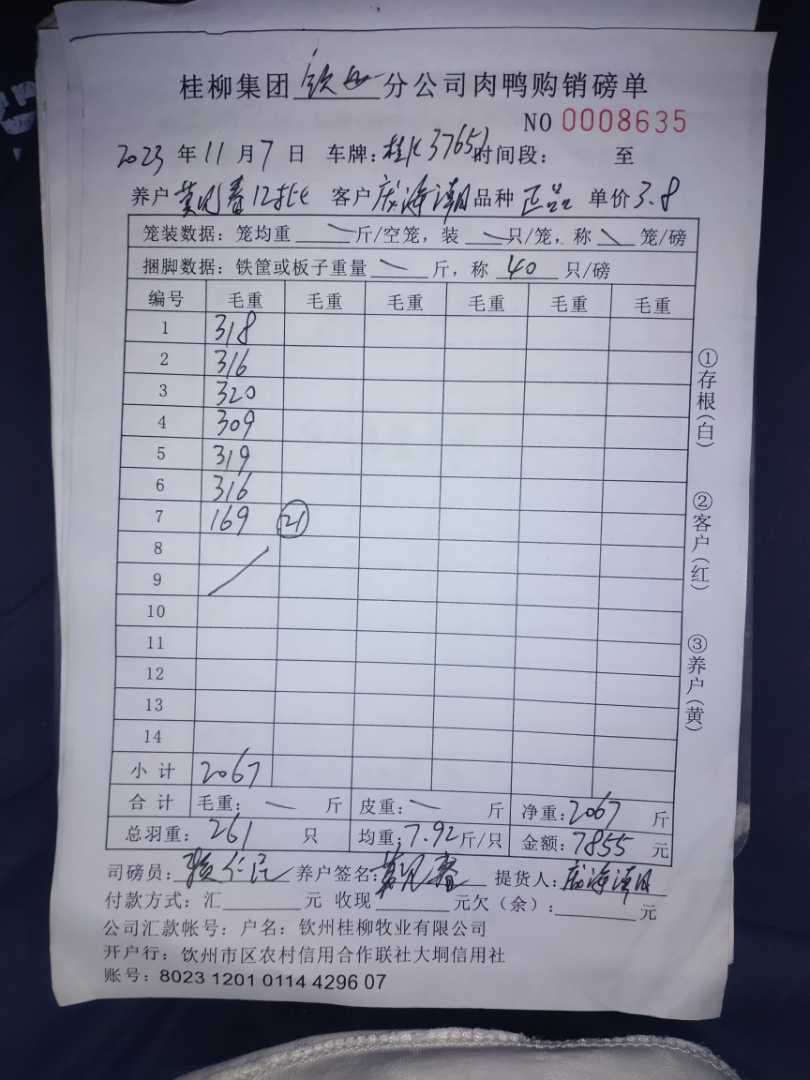 桂柳集团 钦州 分公司肉鸭购销磅单
NO 0008635
2023 年 11 月 7 日 车牌: 桂K37651 时间段: 至
养户 12批 客户 庞海潮 品种 正品 单价 3.8
笼装数据: 笼均重 斤/空笼, 装 只/笼, 称 笼/磅
捆脚数据: 铁筐或板子重量 斤, 称 40 只/磅
编号 毛重 毛重 毛重 毛重 毛重 毛重
1 318
2 316
3 320
4 309
5 319
6 316
7 169 21
8
9
10
11
12
13
14
小计 2067
合计 毛重: 斤 皮重: 斤 净重: 2067 斤
总羽重: 261 只 均重: 7.92 斤/只 金额: 7855 元
司磅员: 养户签名: 提货人: 庞海潮
付款方式: 汇 元 收现 元欠(余): 元
公司汇款帐号: 户名: 钦州桂柳牧业有限公司
开户行: 钦州市区农村信用合作联社大垌信用社
账号: 8023 1201 0114 4296 07
①存根(白)
②客户(红)
③养户(黄)